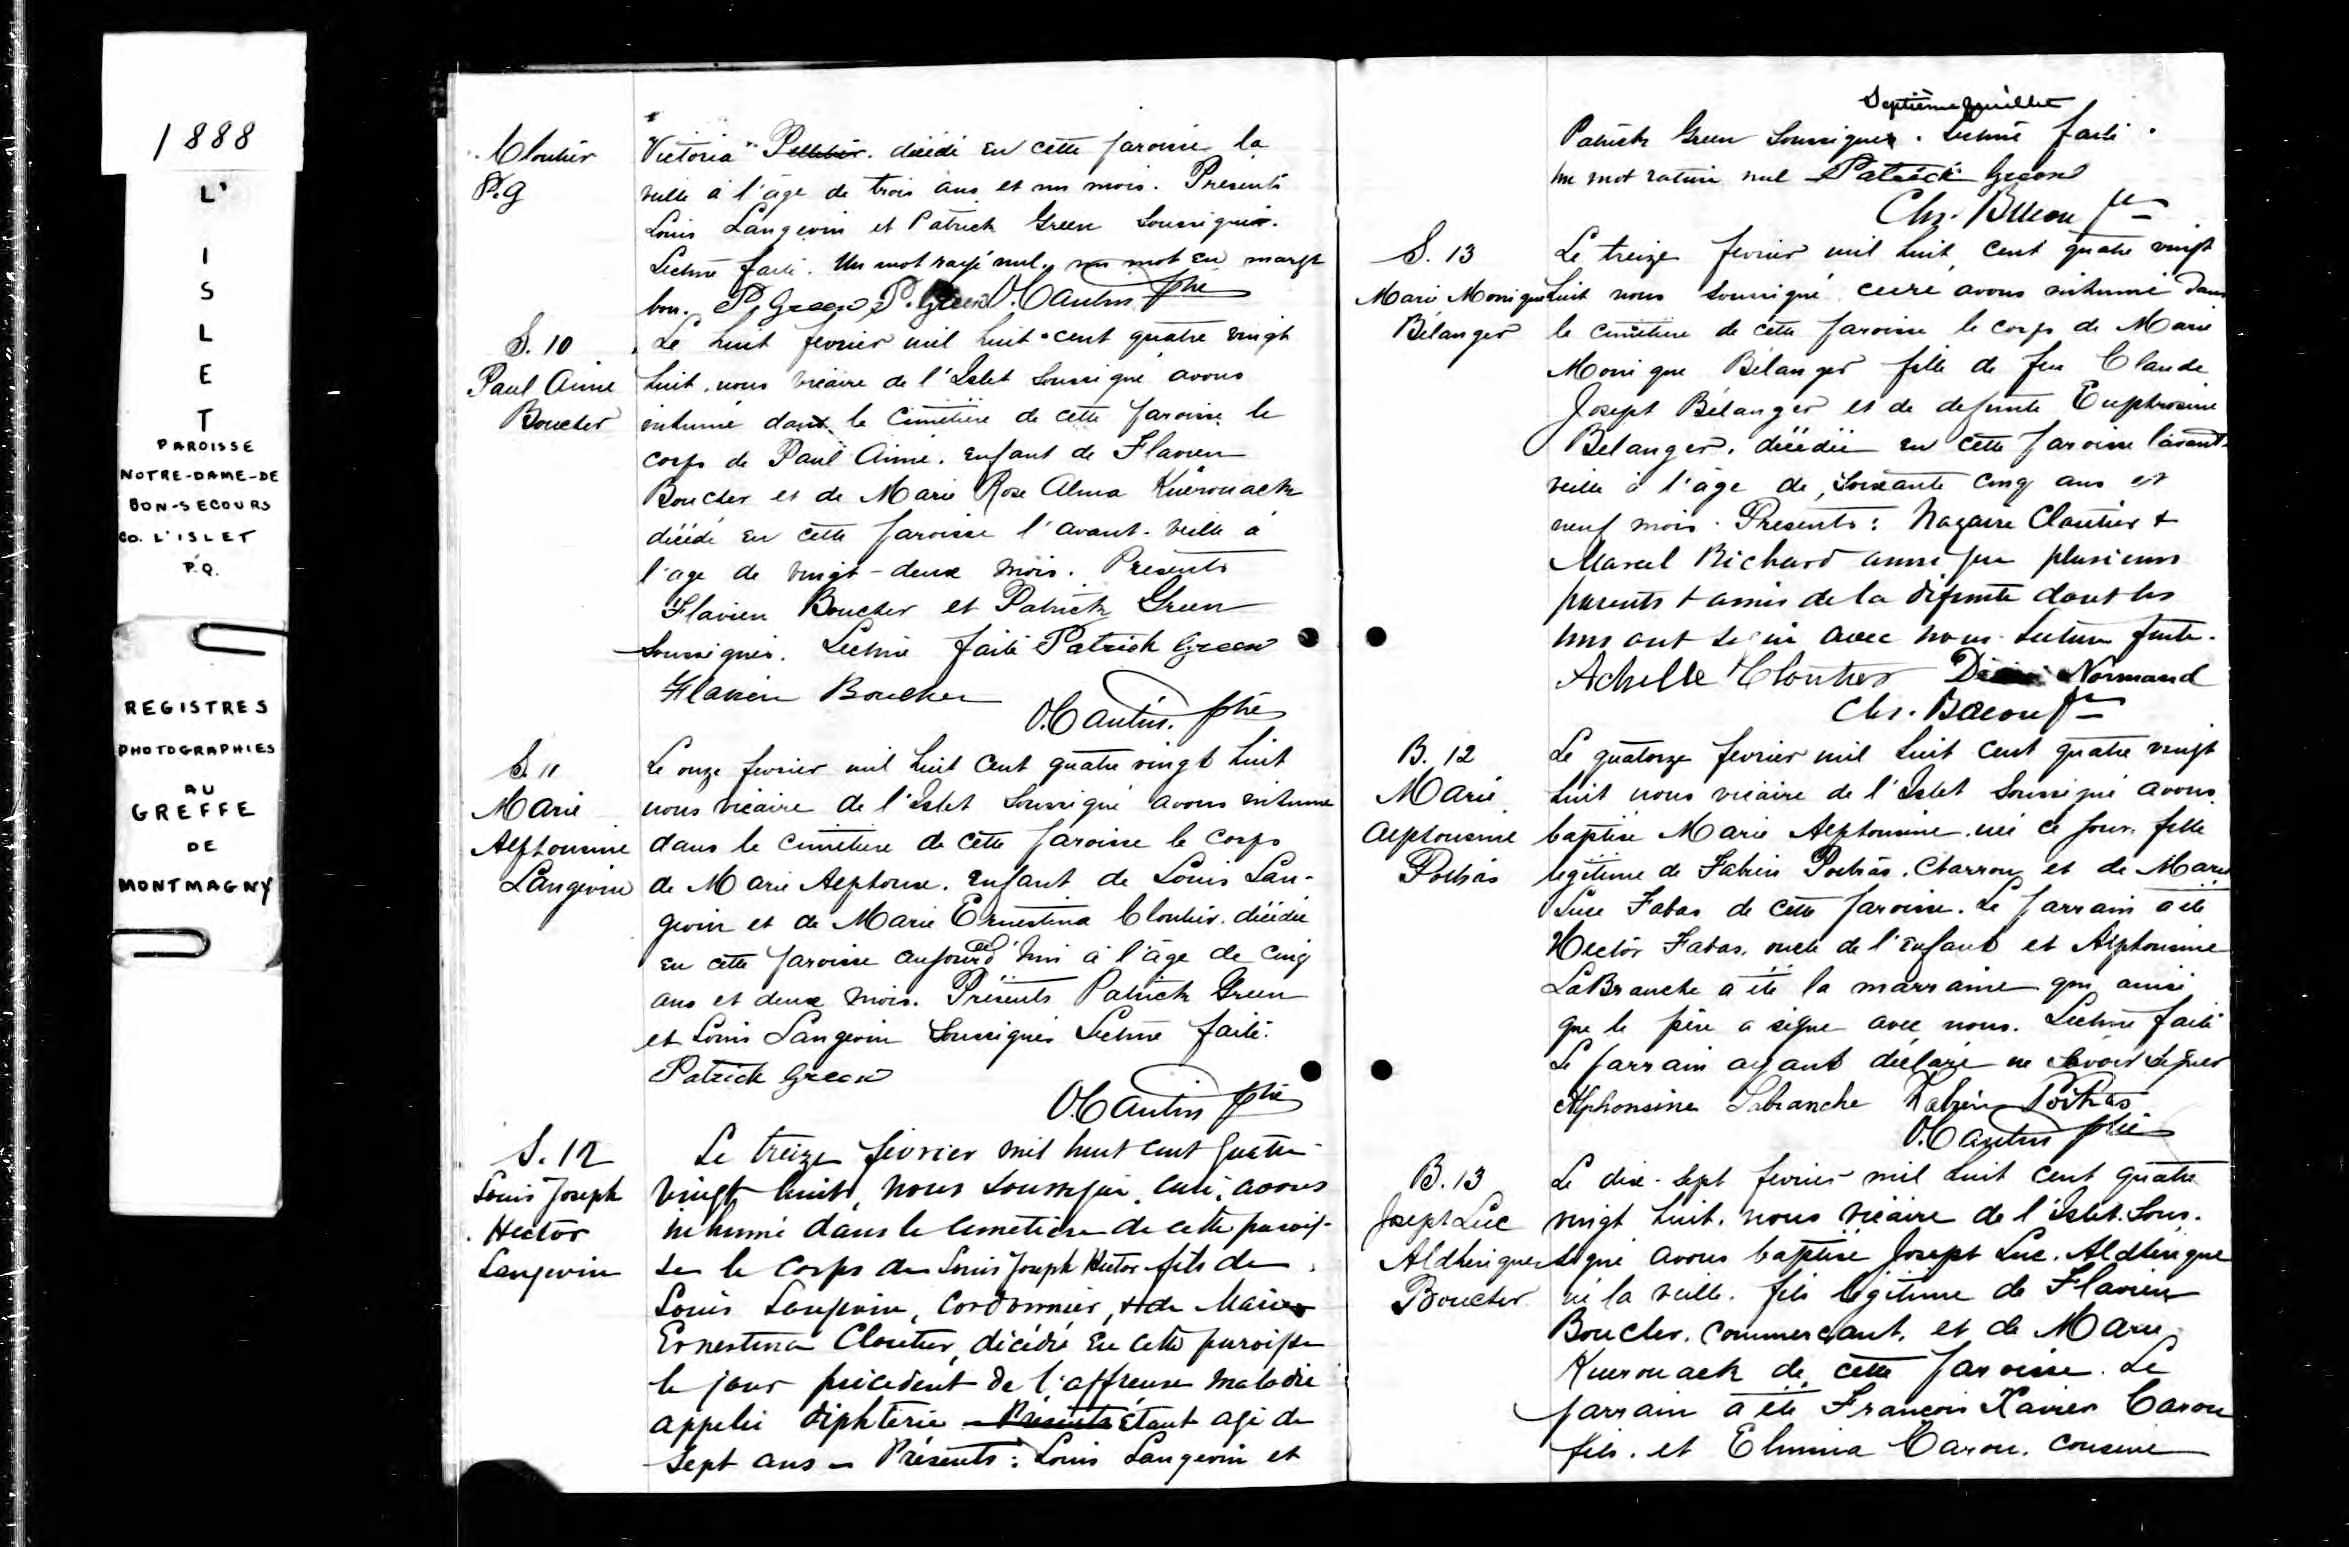 1888
L'
I
S
L
E
T
PAROISSE
NOTRE-DAME-DE
BON-SECOURS
CO. L'ISLET
P.Q.
REGISTRES
PHOTOGRAPHIES
AU
GREFFE
DE
MONTMAGNY
Cloutier
P.G
Victoria Pelletier. décédé en cette paroisse la
veille à l'âge de trois ans et un mois. Présents
Louis Langevin et Patrick Green soussignés.
Lecture faite. Un mot rayé nul. un mot en marge
bon. P. Green P. Green ptre
S. 10
Paul Aimé
Boucher
Le huit fevrier mil huit cent quatre vingt
huit, nous vicaire de l'Islet soussigné avons
inhumé dans le cimetière de cette paroisse le
corps de Paul Aimé. enfant de Flavien
Boucher et de Marie Rose Alma Kuerouack
décédé en cette paroisse l'avant-veille à
l'age de vingt-deux mois. Présents
Flavien Boucher et Patrick Green
soussignés. Lecture faite Patrick Green
Flavien Boucher
ptre
S. 11
Marie
Alphonsine
Langevin
Le onze fevrier mil huit cent quatre vingt huit
nous vicaire de l'Islet soussigné avons inhumé
dans le cimetière de cette paroisse le corps
de Marie Alphonse. enfant de Louis Lan-
gevin et de Marie Ernestina Cloutier. décédée
en cette paroisse aujourd'hui à l'âge de cinq
ans et deux mois. Présents Patrick Green
et Louis Langevin soussignés Lecture faite.
Patrick Green
ptre
S. 12
Louis Joseph
Hector
Langevin
Le treize février mil huit cent quatre-
vingt huit, nous soussigné, curé, avons
inhumé dans le cimetière de cette parois-
se le corps de Louis Joseph Hector fils de
Louis Langevin, cordonnier, & de Marie
Ernestina Cloutier, décédé en cette paroisse
le jour précédent de l'affreuse maladie
appelée diphterie Présents étant agé de
sept ans - Présents: Louis Langevin et
Septième feuillet
Patrick Green soussignés. Lecture faite.
Un mot raturé nul Patrick Green
Chs. Bacon ptre
S. 13
Marie Monique
Bélanger
Le treize fevrier mil huit cent quatre vingt
huit nous soussigné curé avons inhumé dans
le cimetière de cette paroisse le corps de Marie
Monique Bélanger fille de feu Claude
Joseph Bélanger et de defunte Euphrosine
Belanger. décédée en cette paroisse l'avant-
veille à l'âge de soixante cinq ans et
neuf mois. Presents: Nazaire Cloutier &
Marcel Richard ainsi que plusieurs
parents & amis de la défunte dont les
uns ont signé avec nous. Lecture faite.
Achille Cloutier Normand
Chs. Bacon ptre
B. 12
Marie
Alphonsine
Poitras
Le quatorze fevrier mil huit cent quatre vingt
huit nous vicaire de l'Islet soussigné avons
baptisé Marie Alphonsine. née ce jour. fille
legitime de Fabien Poitras. Charron et de Marie
Luce Fabas de cette paroisse. Le parrain a été
Hector Fabas. oncle de l'enfant et Alphonsine
LaBranche a été la marraine qui ainsi
que le père a signé avec nous. Lecture faite
Le parrain ayant déclaré ne savoir signer
Alphonsine Labranche Fabien Poitras
ptre
B. 13
Joseph Luc
Aldherique
Boucher
Le dix-sept fevrier mil huit cent quatre
vingt huit. nous vicaire de l'Islet. sous-
signé avons baptisé Joseph Luc. Aldherique
né la veille. fils légitime de Flavien
Boucher. commerçant. et de Marie
Kuerouack de cette paroisse. Le
parrain a été François Xavier Caron
fils. et Elmina Caron. cousine